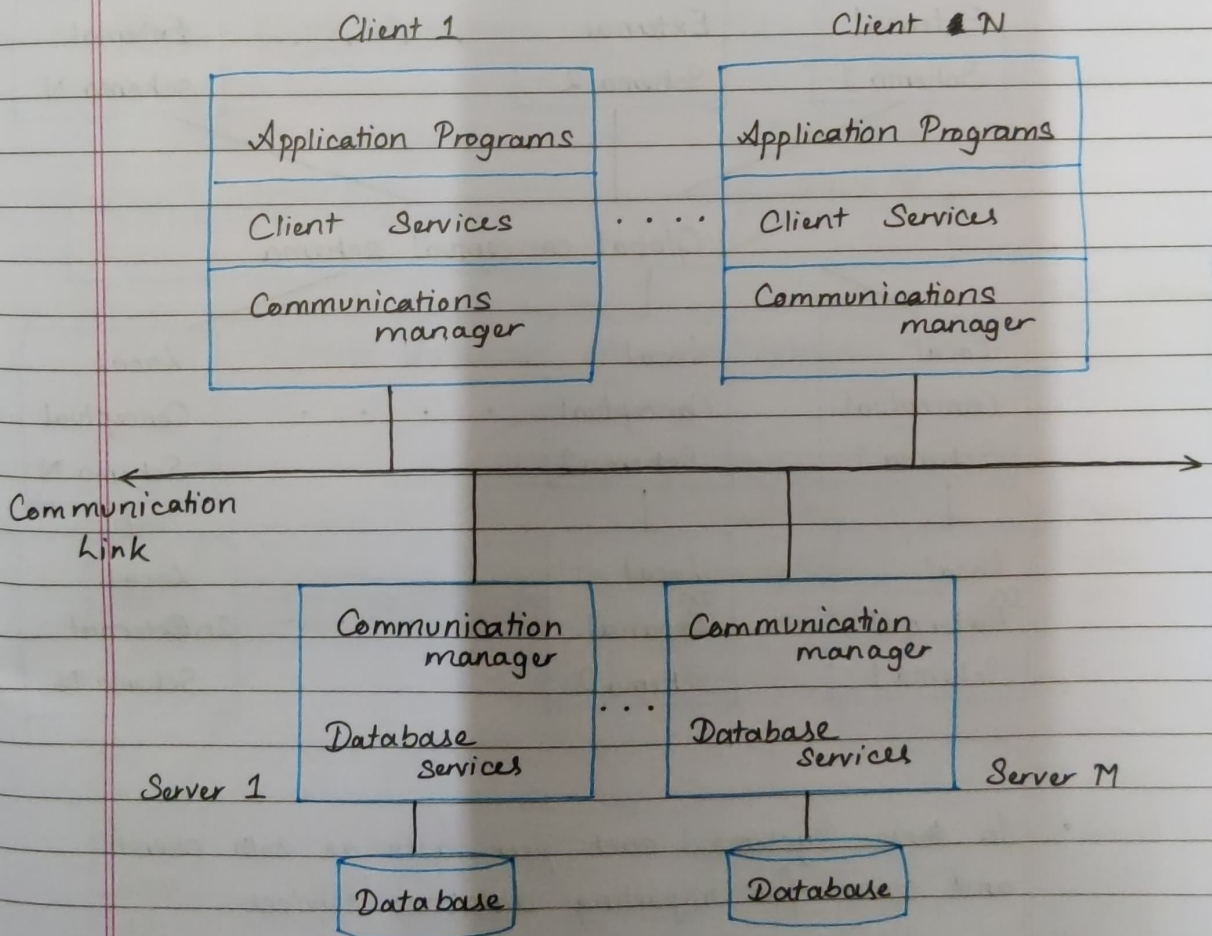 Client 1
Client N
Application Programs
Client Services
Communications
manager
. . . .
Application Programs
Client Services
Communications
manager
Communication
Link
Communication
manager
Database
Services
. . .
Communication
manager
Database
Services
Server 1
Server M
Database
Database